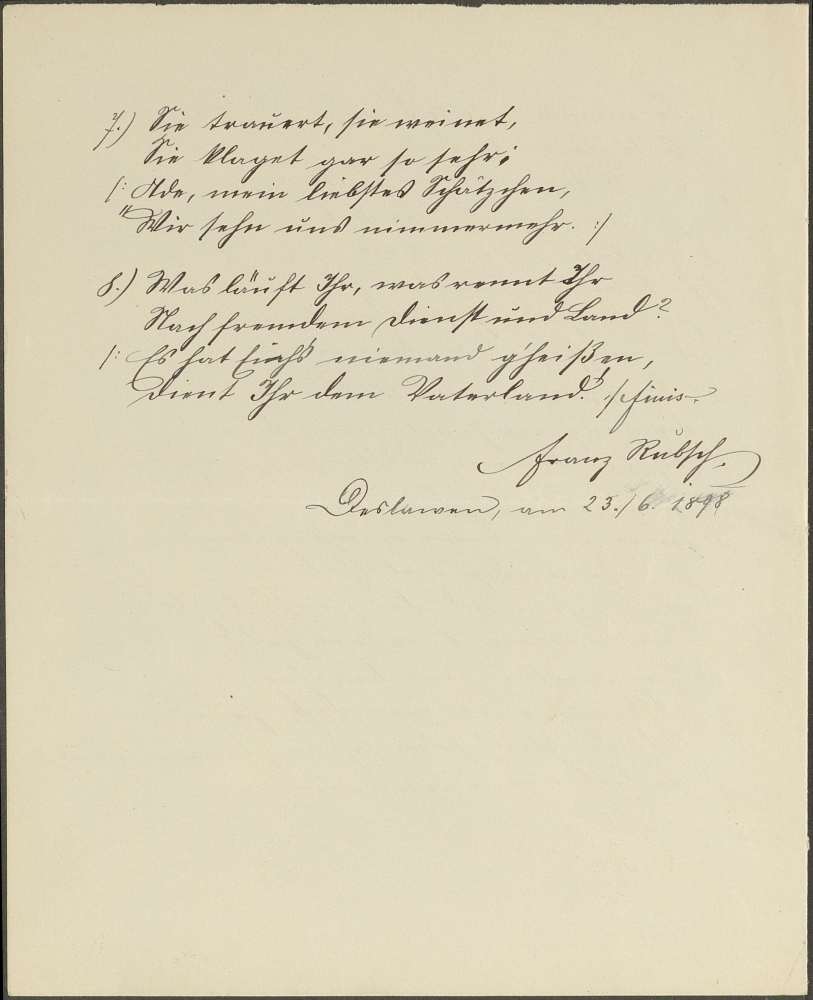 7.) Sie trauert, sie weinet,
Sie klaget gar so sehr:
/: „Ade, mein liebstes Schätzchen,
Wir sehn uns nimmermehr. :/
8.) Was läuft Ihr, was rennt Ihr
Nach fremdem Dienst und Land?
/: Es hat Euchs niemand g'heißen,
Dient Ihr dem Vaterland." :/ finis.
Franz Rubsch.
Deslawen, am 23./6. 1898